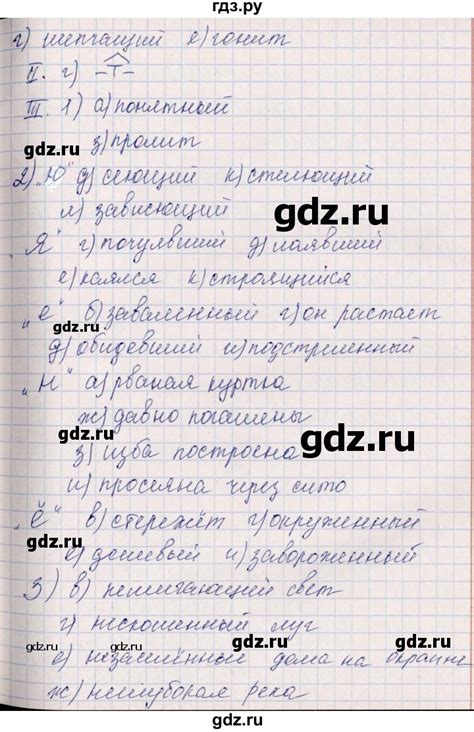 гдз.ру
г) шепчащий е) гонит
II. г)
III. 1) а) понятный
з) пролит
2) „Ю" д) сеющий к) стелющий
л) зависющий
„Я" г) почуявший д) лаявший
е) каялся к) строящийся
„е" б) заваленный г) он растает
д) обидевший и) подстреленный
„Н" а) рваная куртка
ж) давно погашены
з) изба построена
и) просеяна через сито
„Ё" в) стережёт г) окруженный
е) дешевый и) завороженный
3) в) немигающий свет
г) нескошенный луг
е) незаселённые дома на окраине
ж) неглубокая река
gdz.ru
gdz.ru
gdz.ru
gdz.ru
gdz.ru
gdz.ru
gdz.ru
gdz.ru
gdz.ru
gdz.ru